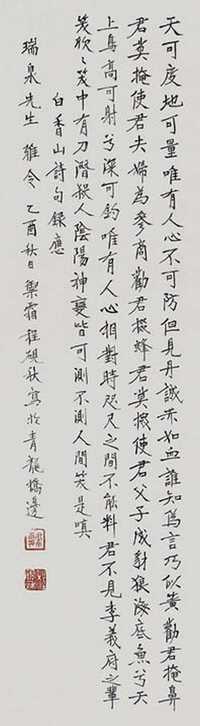 天可度地可量唯有人心不可防但見丹誠赤如血誰知偽言巧似簧勸君掩鼻
君莫掩使君夫婦為參商勸君掇蜂君莫掇使君父子成豺狼海底魚兮天
上鳥高可射兮深可釣唯有人心相對時咫尺之間不能料君不見李義府之輩
笑欣〻笑中有刀潛殺人陰陽神變皆可測不測人間笑是嗔
白香山詩句錄應
瑞泉先生 雅令 乙酉秋日 禦霜程硯秋寫於青龍橋邊